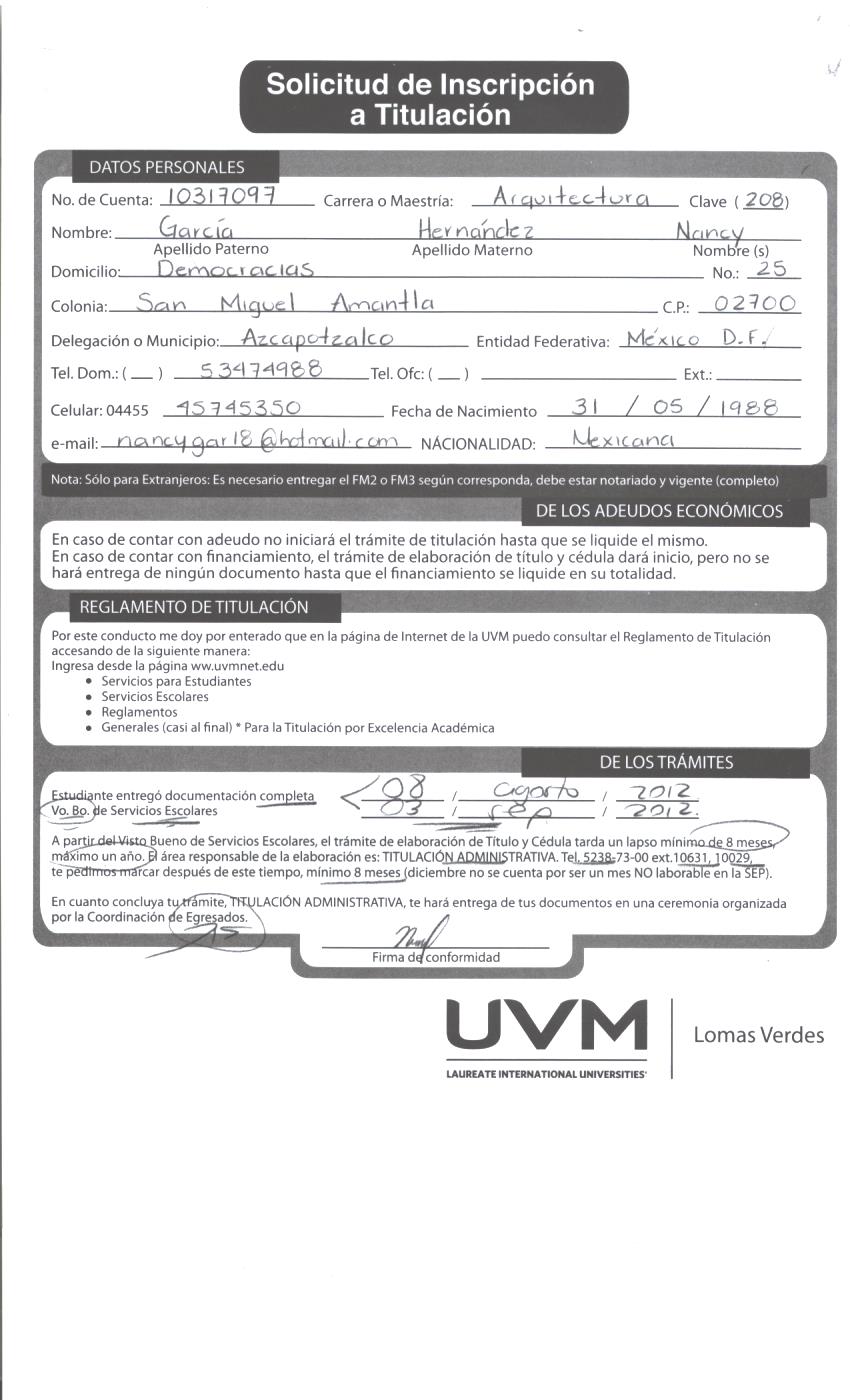 Solicitud de Inscripción
a Titulación
DATOS PERSONALES
No. de Cuenta: 10317097 Carrera o Maestría: Arquitectura Clave ( 208)
Nombre: García Hernández Nancy
Apellido Paterno Apellido Materno Nombre (s)
Domicilio: Democracias No.: 25
Colonia: San Miguel Amantla C.P.: 02700
Delegación o Municipio: Azcapotzalco Entidad Federativa: México D.F.
Tel. Dom.: ( __ ) 53474988 Tel. Ofc: ( __ ) Ext.:
Celular: 04455 45745350 Fecha de Nacimiento 31 / 05 / 1988
e-mail: nancygar18@hotmail.com NÁCIONALIDAD: Mexicana
Nota: Sólo para Extranjeros: Es necesario entregar el FM2 o FM3 según corresponda, debe estar notariado y vigente (completo)
DE LOS ADEUDOS ECONÓMICOS
En caso de contar con adeudo no iniciará el trámite de titulación hasta que se liquide el mismo.
En caso de contar con financiamiento, el trámite de elaboración de título y cédula dará inicio, pero no se
hará entrega de ningún documento hasta que el financiamiento se liquide en su totalidad.
REGLAMENTO DE TITULACIÓN
Por este conducto me doy por enterado que en la página de Internet de la UVM puedo consultar el Reglamento de Titulación
accesando de la siguiente manera:
Ingresa desde la página ww.uvmnet.edu
• Servicios para Estudiantes
• Servicios Escolares
• Reglamentos
• Generales (casi al final) * Para la Titulación por Excelencia Académica
DE LOS TRÁMITES
Estudiante entregó documentación completa 08 / agosto / 2012
Vo. Bo. de Servicios Escolares 03 / sep / 2012.
A partir del Visto Bueno de Servicios Escolares, el trámite de elaboración de Título y Cédula tarda un lapso mínimo de 8 meses,
máximo un año. El área responsable de la elaboración es: TITULACIÓN ADMINISTRATIVA. Tel. 5238-73-00 ext.10631, 10029,
te pedimos marcar después de este tiempo, mínimo 8 meses (diciembre no se cuenta por ser un mes NO laborable en la SEP).
En cuanto concluya tu trámite, TITULACIÓN ADMINISTRATIVA, te hará entrega de tus documentos en una ceremonia organizada
por la Coordinación de Egresados.
Firma de conformidad
UVM
Lomas Verdes
LAUREATE INTERNATIONAL UNIVERSITIES